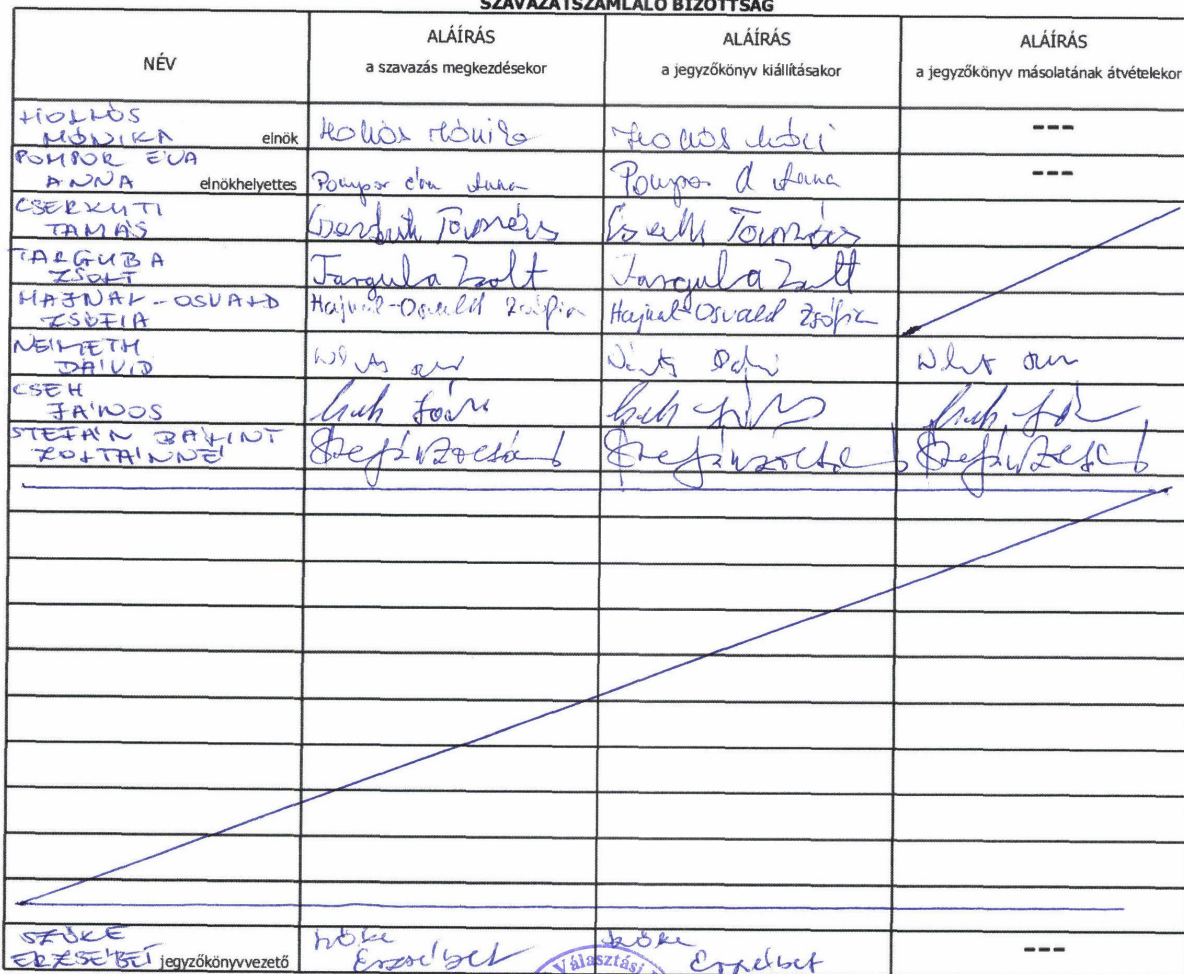 SZAVAZATSZÁMLÁLÓ BIZOTTSÁG
NÉV
ALÁÍRÁS
a szavazás megkezdésekor
ALÁÍRÁS
a jegyzőkönyv kiállításakor
ALÁÍRÁS
a jegyzőkönyv másolatának átvételekor
HOLLÓS
MÓNIKA elnök
Hollós Mónika
Hollós Móni
---
POMPOR ÉVA
ANNA elnökhelyettes
Pompor Éva Anna
Pompor Anna
---
CSERKUTI
TAMÁS
Tamás
Tamás
TARGUBA
ZSOLT
Targula Zsolt
Targula Zsolt
HAJNAL-OSVALD
ZSÓFIA
Hajnal-Osvald Zsófia
Hajnal-Osvald Zsófia
NÉMETH
DÁVID
CSEH
JÁNOS
Cseh János
Cseh János
Cseh
STEFÁN BÁLINT
ZOLTÁNNÉ
SZŐKE
ERZSÉBET jegyzőkönyvvezető
Szőke
Erzsébet
Szőke
Erzsébet
---
Választási